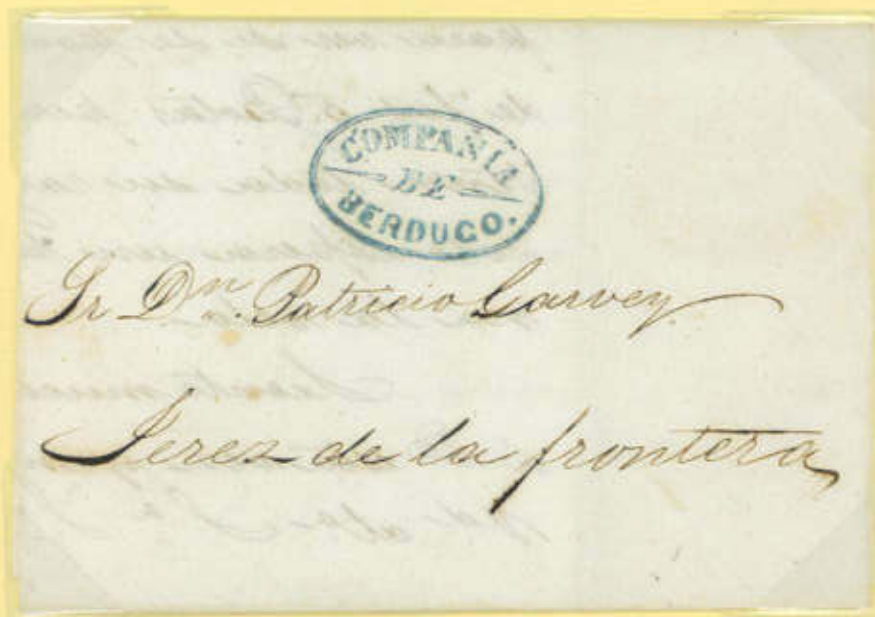 COMPAÑIA
DE
BERDUGO.
Sr Dn. Patricio Garvey
Jerez de la frontera